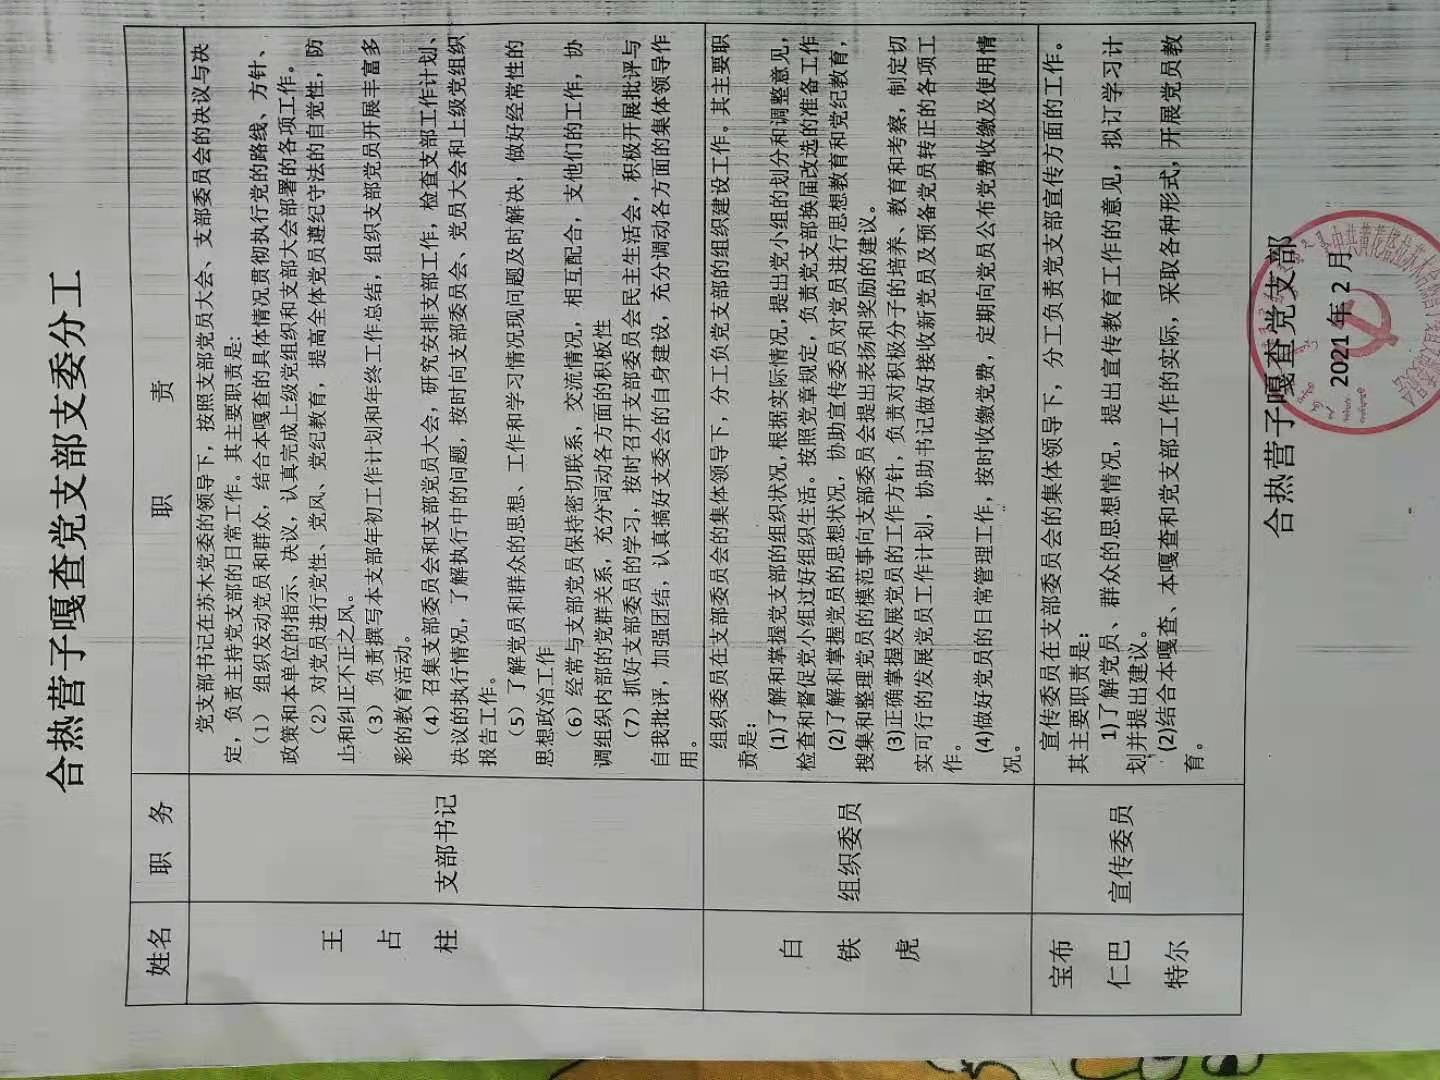 合热营子嘎查党支部支委分工
姓名 职 务 职 责
王
占
柱
支部书记
党支部书记在苏木党委的领导下，按照支部党员大会、支部委员会的决议与决
定，负责主持党支部的日常工作。其主要职责是:
（1） 组织发动党员和群众，结合本嘎查的具体情况贯彻执行党的路线、方针、
政策和本单位的指示、决议，认真完成上级党组织和支部大会部署的各项工作。
（2）对党员进行党性、党风、党纪教育，提高全体党员遵纪守法的自觉性，防
止和纠正不正之风。
（3） 负责撰写本支部年初工作计划和年终工作总结，组织支部党员开展丰富多
彩的教育活动。
（4）召集支部委员会和支部党员大会，研究安排支部工作，检查支部工作计划、
决议的执行情况，了解执行中的问题，按时向支部委员会、党员大会和上级党组织
报告工作。
（5）了解党员和群众的思想、工作和学习情况现问题及时解决，做好经常性的
思想政治工作
（6）经常与支部党员保持密切联系，交流情况，相互配合，支他们的工作，协
调组织内部的党群关系，充分词动各方面的积极性
（7）抓好支部委员的学习，按时召开支部委员会民主生活会，积极开展批评与
自我批评，加强团结，认真搞好支委会的自身建设，充分调动各方面的集体领导作
用。
白
铁
虎
组织委员
组织委员在支部委员会的集体领导下，分工负党支部的组织建设工作。其主要职
责是:
(1)了解和掌握党支部的组织状况,根据实际情况,提出党小组的划分和调整意见，
检查和督促党小组过好组织生活。按照党章规定，负责党支部换届改选的准备工作
(2)了解和掌握党员的思想状况，协助宣传委员对党员进行思想教育和党纪教育，
搜集和整理党员的模范事向支部委员会提出表扬和奖励的建议。
(3)正确掌握发展党员的工作方针，负责对积极分子的培养、教育和考察，制定切
实可行的发展党员工作计划，协助书记做好接收新党员及预备党员转正的各项工
作。
(4)做好党员的日常管理工作，按时收缴党费，定期向党员公布党费收缴及使用情
况。
宝布
仁巴
特尔
宣传委员
宣传委员在支部委员会的集体领导下，分工负责党支部宣传方面的工作。
其主要职责是:
1)了解党员、群众的思想情况，提出宣传教育工作的意见，拟订学习计
划并提出建议。
(2)结合本嘎查、本嘎查和党支部工作的实际，采取各种形式，开展党员教
育。
合热营子嘎查党支部
2021 年 2 月